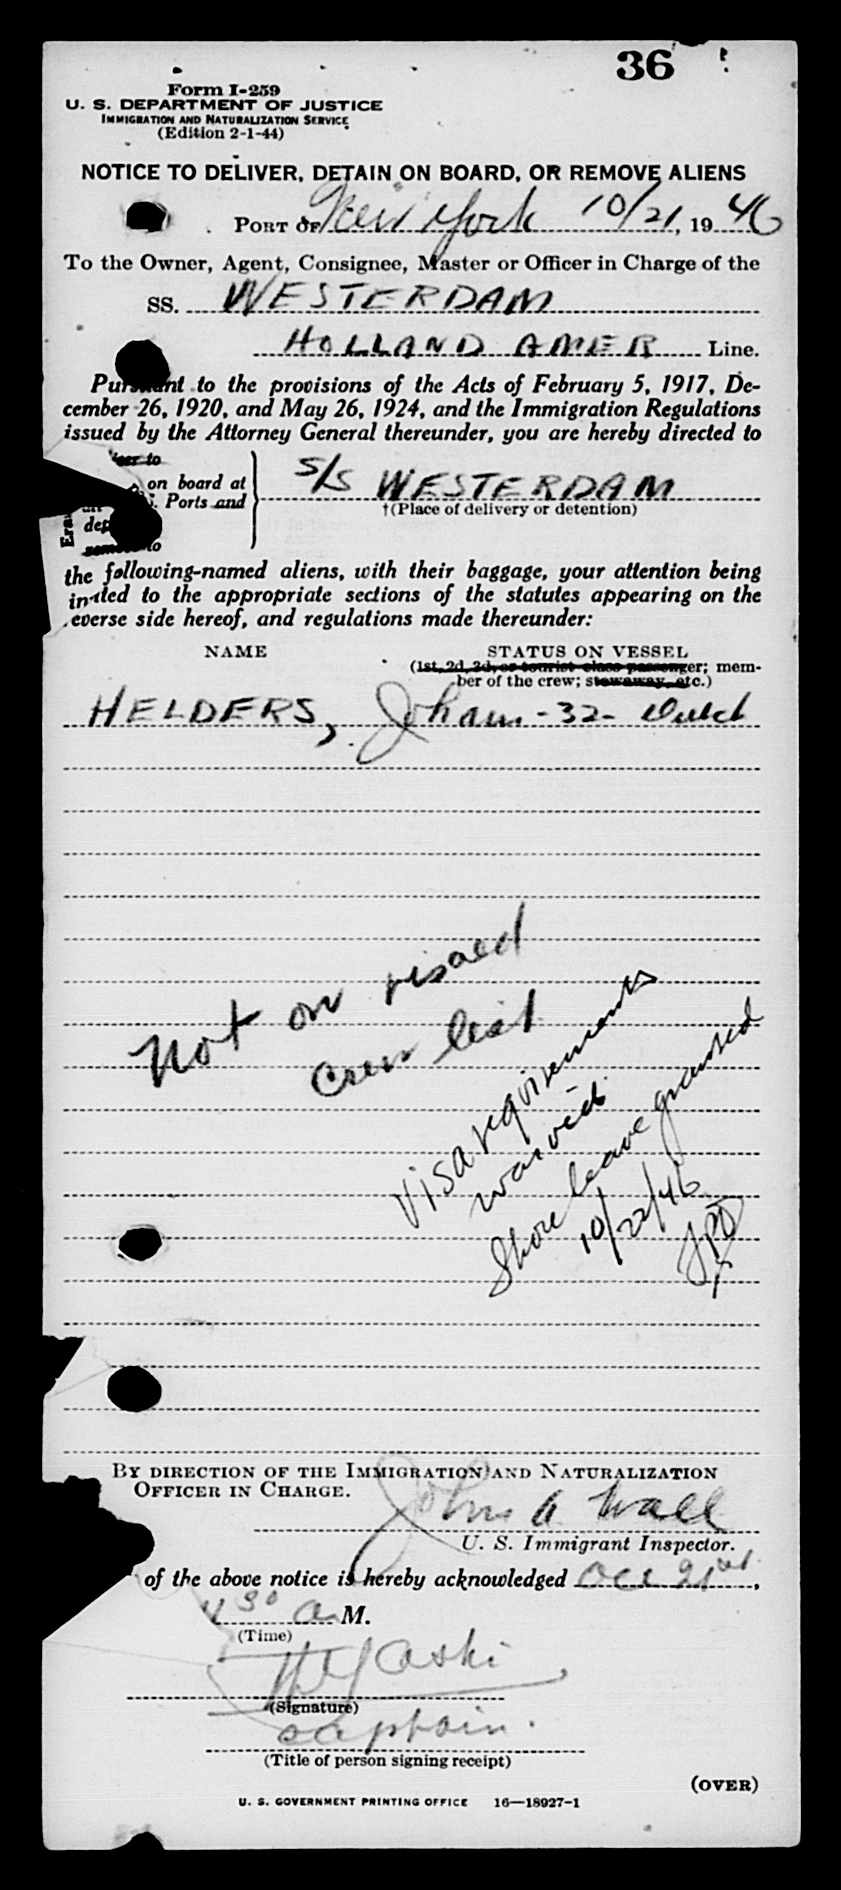 36
Form I-259
U. S. DEPARTMENT OF JUSTICE
IMMIGRATION AND NATURALIZATION SERVICE
(Edition 2-1-44)
NOTICE TO DELIVER, DETAIN ON BOARD, OR REMOVE ALIENS
PORT OF New York 10/21, 1946
To the Owner, Agent, Consignee, Master or Officer in Charge of the
SS. WESTERDAM
HOLLAND AMER Line.
Pursuant to the provisions of the Acts of February 5, 1917, De-
cember 26, 1920, and May 26, 1924, and the Immigration Regulations
issued by the Attorney General thereunder, you are hereby directed to
to
on board at
Ports and
S/S WESTERDAM
†(Place of delivery or detention)
to
the following-named aliens, with their baggage, your attention being
invited to the appropriate sections of the statutes appearing on the
reverse side hereof, and regulations made thereunder:
NAME STATUS ON VESSEL
(1st, 2d, 3d, or tourist class passenger; mem-
ber of the crew; stowaway, etc.)
HELDERS, Johann - 32 - Dutch
Not on visaed
crew list
Visa requirements
waived
Shore leave granted
10/22/46
BY DIRECTION OF THE IMMIGRATION AND NATURALIZATION
OFFICER IN CHARGE.
John A Wall
U. S. Immigrant Inspector.
of the above notice is hereby acknowledged Oct 21st,
11 30 a M.
(Time)
(Signature)
captain.
(Title of person signing receipt)
(OVER)
U. S. GOVERNMENT PRINTING OFFICE 16—18927-1